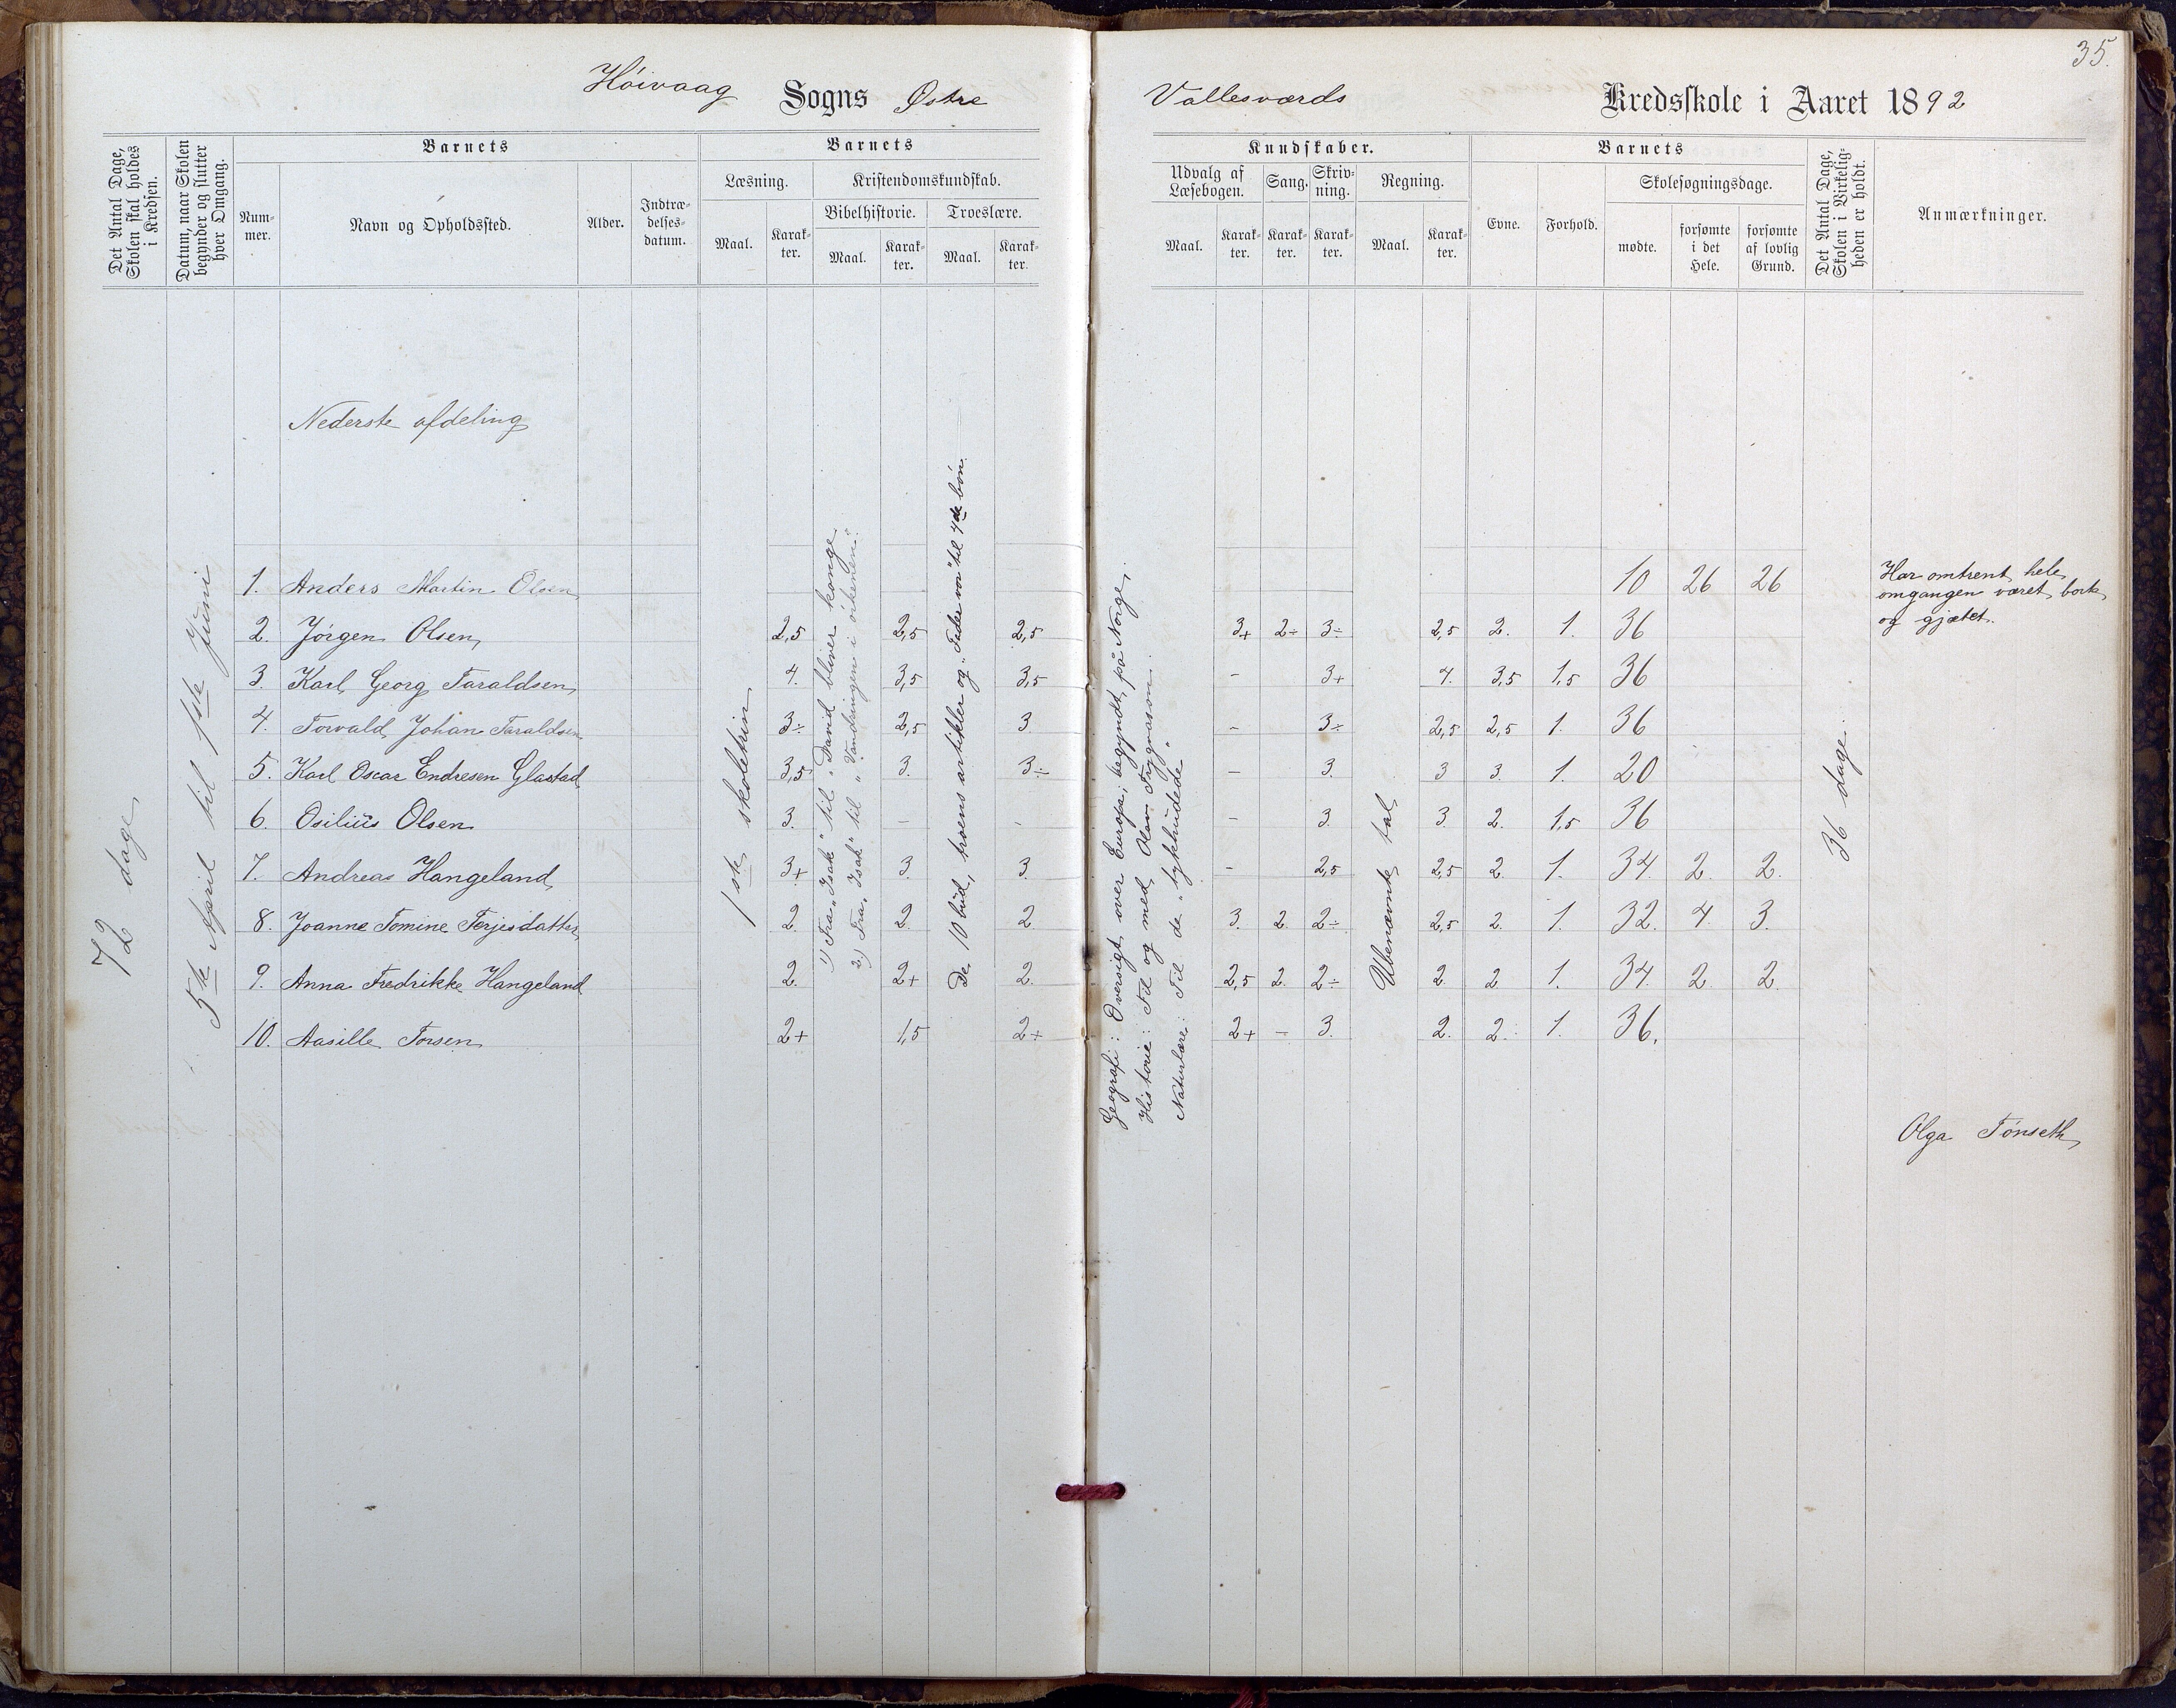 35.
Høivaag Sogns Østre Vallesværds Kredsskole i Aaret 1892
Det Antal Dage, Skolen skal holdes i Kredsen.
Datum, naar Skolen begynder og slutter hver Omgang.
Barnets
Num-
mer.
Navn og Opholdssted.
Alder.
Indtræ-
delses-
datum.
Barnets
Læsning.
Maal.
Karak-
ter.
Kristendomskundskab.
Bibelhistorie.
Maal.
Karak-
ter.
Troeslære.
Maal.
Karak-
ter.
Kundskaber.
Udvalg af
Læsebogen.
Maal.
Karak-
ter.
Sang.
Karak-
ter.
Skriv-
ning.
Karak-
ter.
Regning.
Maal.
Karak-
ter.
Barnets
Evne.
Forhold.
Skolesøgningsdage.
mødte.
forsømte
i det
Hele.
forsømte
af lovlig
Grund.
Det Antal Dage,
Skolen i Virkelig-
heden er holdt.
Anmærkninger.
72 dage
5te April til 1ste juni
Nederste afdeling
1ste skoletrin
1) Fra "Isak" til "David bliver konge
2) Fra "Isak" til "Vandringen i ørkenen".
De 10 bud, troens artikler og "Fader vor" til 4de bøn.
Geografi: Oversigt over Europa; begyndt på Norge.
Historie: Til og med Olav Trygvason.
Naturlære: Til de "tykhudede"
Ubenævnte tal
36 dage.
1. Anders Martin Olsen 10 26 26 Har omtrent hele
omgangen været bort
og gjætet.
2. Jørgen Olsen 2,5 2,5 2,5 3+ 2÷ 3÷ 2,5 2. 1. 36
3. Karl Georg Taraldsen 4. 3,5 3,5 - 3+ 4. 3,5 1,5 36
4. Torvald Johan Taraldsen 3÷ 2,5 3 - 3÷ 2,5 2,5 1. 36
5. Karl Oscar Endresen Glastad 3,5 3. 3÷ - 3. 3 3. 1. 20
6. Osilius Olsen 3. - - - 3. 3. 2. 1,5 36
7. Andreas Hangeland 3+ 3. 3. - 2,5 2,5 2. 1. 34. 2. 2.
8. Joanne Tomine Terjesdatter 2. 2. 2. 3. 2. 2÷ 2,5 2. 1. 32. 4. 3.
9. Anna Fredrikke Hangeland 2. 2+ 2. 2,5 2. 2÷ 2. 2 1. 34. 2. 2.
10. Aasille Torsen 2+ 1,5 2+ 2+ - 3. 2. 2. 1. 36.
Olga Tønseth